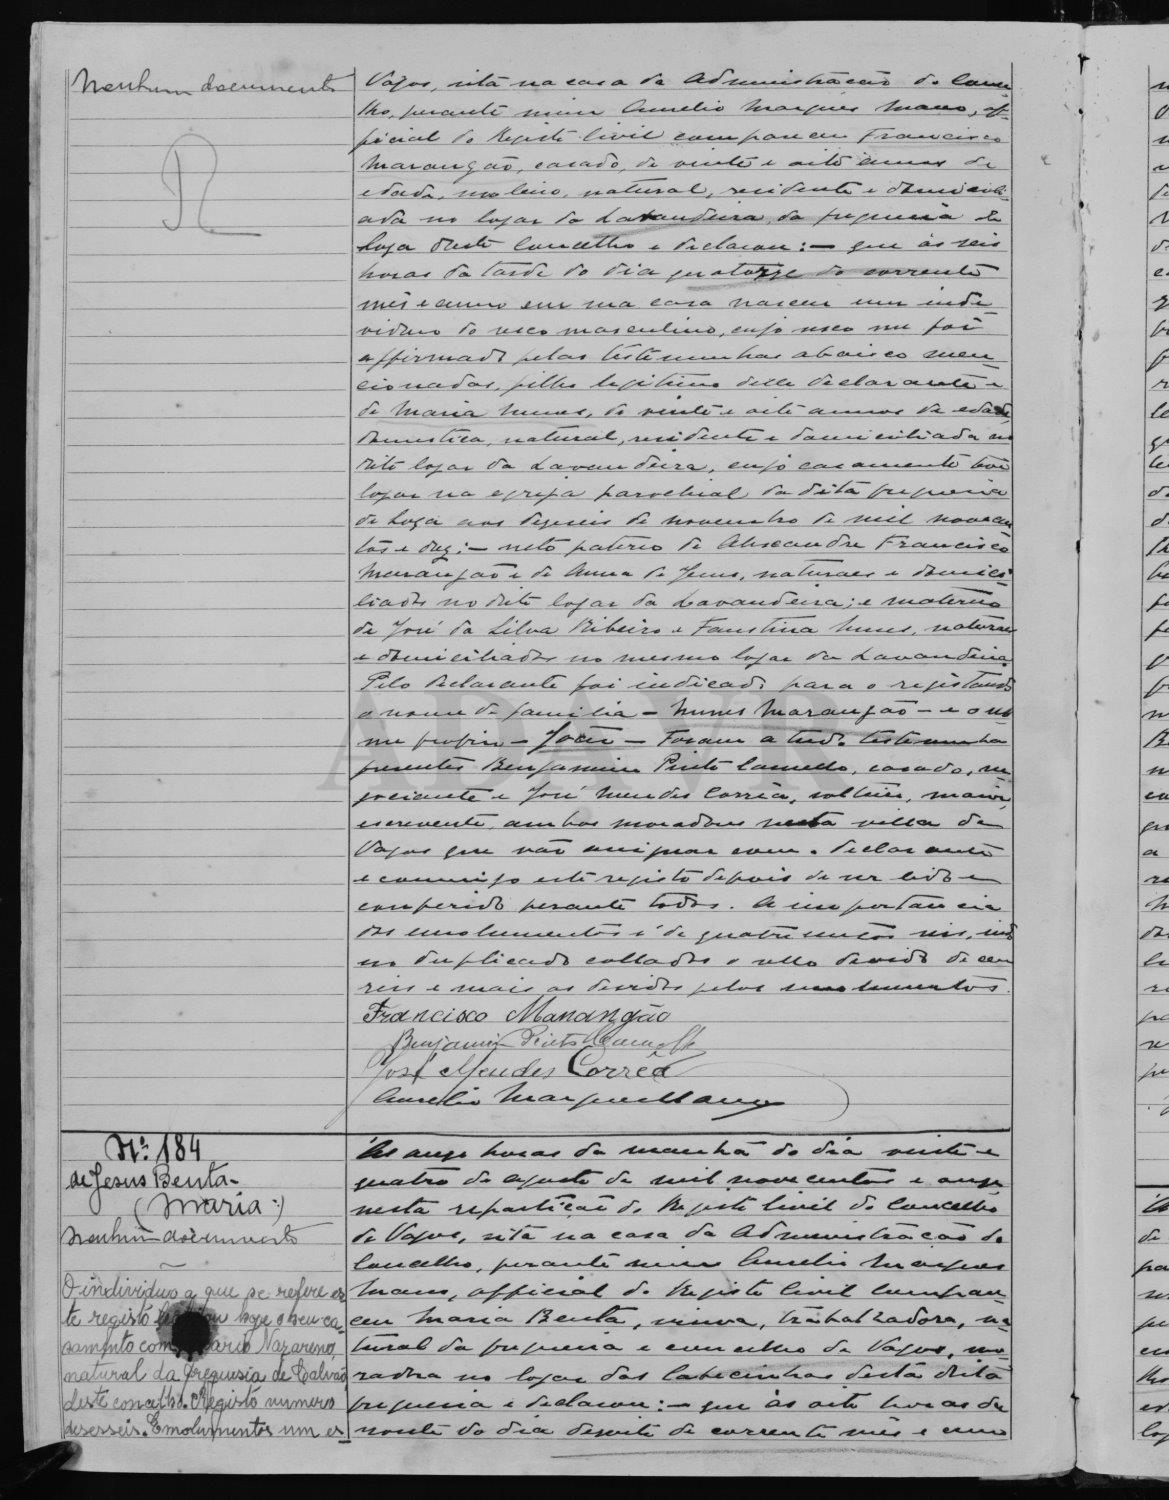 Nenhum documento
Vagos, sita na casa da Administração do Conce
lho, perante mim Aurelio Marques Mano, of-
ficial do Registo Civil compareceu Francisco
Marangão, casado, de vinte e oito annos de
edade, moleiro, natural, residente e domicili-
ado no logar da Lavandeira, da freguesia de
Soza deste Concelho e declarou: — que ás seis
horas da tarde do dia quatorze do corrente
mês e anno em sua casa nasceu um indi
viduo do sexo masculino, cujo sexo me foi
affirmado pelas testemunhas abaixo men-
cionadas, filho legitimo delle declarante e
de Maria Nunes, de vinte e oito annos de edade,
domestica, natural, residente e domiciliada no
dito logar da Lavandeira, cujo casamento teve
logar na egreja parochial da dita freguesia
de Soza aos dezeseis de novembro de mil novecen
tos e dez: — neto paterno de Alexandre Francisco
Marangão e de Anna de Jesus, naturaes e domici-
liados no dito logar da Lavandeira; e materno
de José da Silva Ribeiro e Faustina Nunes, naturaes
e domiciliados no mesmo logar da Lavandeira.
Pelo declarante foi indicado para o registando
o nome de familia — Nunes Marangão — e o no
me proprio — João — Foram a tudo testemunhas
presentes Benjamim Pinto Camello, casado, ne
gociante e José Mendes Corrêa, solteiro, maior,
escrevente, ambos moradores nesta villa de
Vagos que vão assignar com o declarante
e commigo este registo depois de ser lido e
conferido perante todos. A importancia
dos emolumentos é de quatrocentos reis, indo
no duplicado collados o sello devido de cem
reis e mais os devidos pelos emolumentos.
Francisco Marangão
Benjamim Pinto Camello
José Mendes Corrêa
Aurelio Marques Mano
Nº 184
de Jesus Benta-
(Maria:)
Nenhum documento
O individuo a que se refere es
te registo hoje o seu ca-
samento com Nazareno,
natural da freguesia de Calvão,
deste concelho. Registo numero
deseseis. Emolumentos um es-
Ás onze horas da manhã do dia vinte e
quatro de agosto de mil novecentos e onze
nesta repartição do Registo Civil do Concelho
de Vagos, sita na casa da Administração do
Concelho, perante mim Aurelio Marques
Mano, official do Registo Civil compare-
ceu Maria Benta, viuva, trabalhadora, na
tural da freguesia e concelho de Vagos, mo-
radora no logar das Cabecinhas desta dita
freguesia e declarou: — que ás oito horas da
noite do dia dezoito do corrente mês e anno
ADAVR